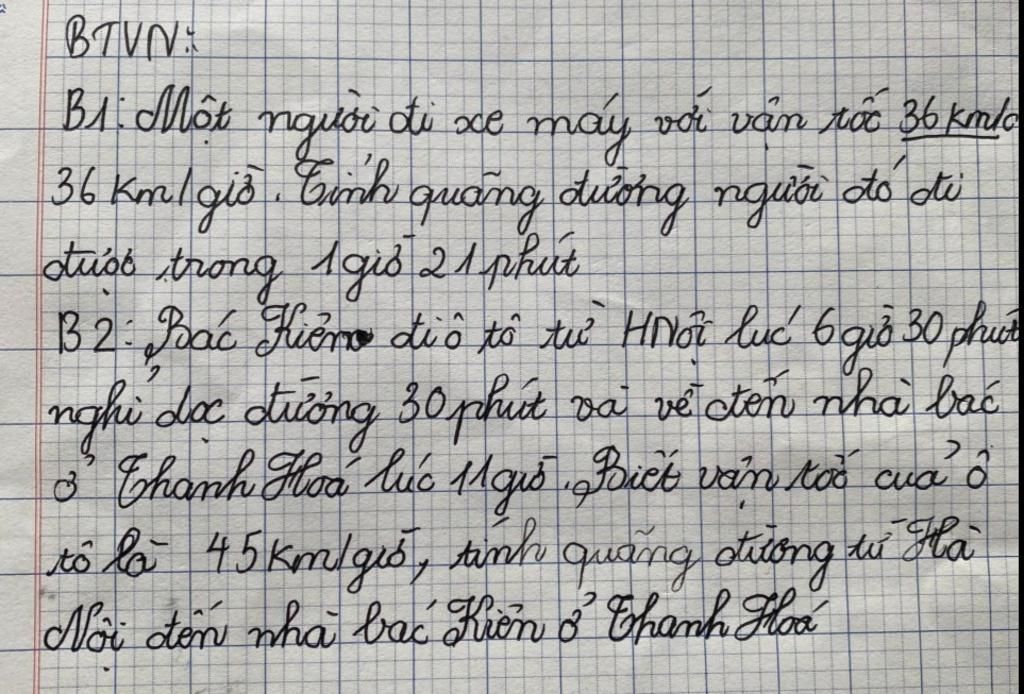 BTVN:
B1: Một người đi xe máy với vận tốc 36 km/g
36 km/giờ. Tính quãng đường người đó đi
được trong 1 giờ 21 phút
B2: Bác Kiên đi ô tô từ HNội lúc 6 giờ 30 phút
nghỉ dọc đường 30 phút và về đến nhà bác
ở Thanh Hoá lúc 11 giờ. Biết vận tốc của ô
tô là 45 km/giờ, tính quãng đường từ Hà
Nội đến nhà bác Kiên ở Thanh Hoá